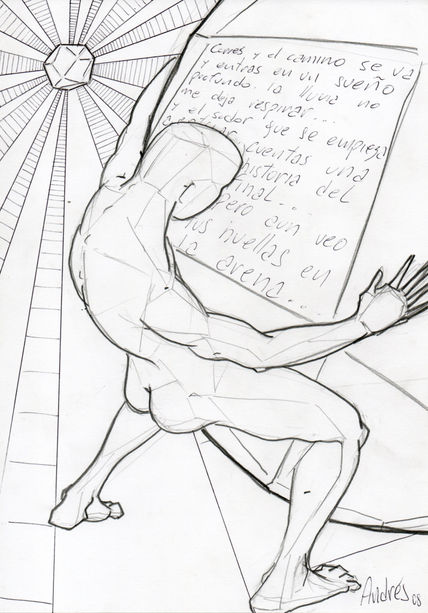 Corres y el camino se va
y entras en un sueño
profundo. la lluvia no
me deja respirar...
y el sudor que se empieza
cuentas una
historia del
final...
pero aun veo
tus huellas en
la arena...
Andrés 08